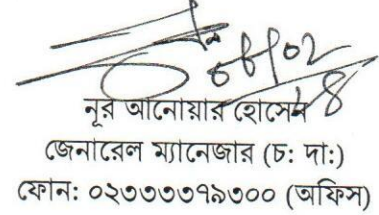 নূর আনোয়ার হোসেন
জেনারেল ম্যানেজার (চ: দা:)
ফোন: ০২৩৩৩৩৭৯৩০০ (অফিস)